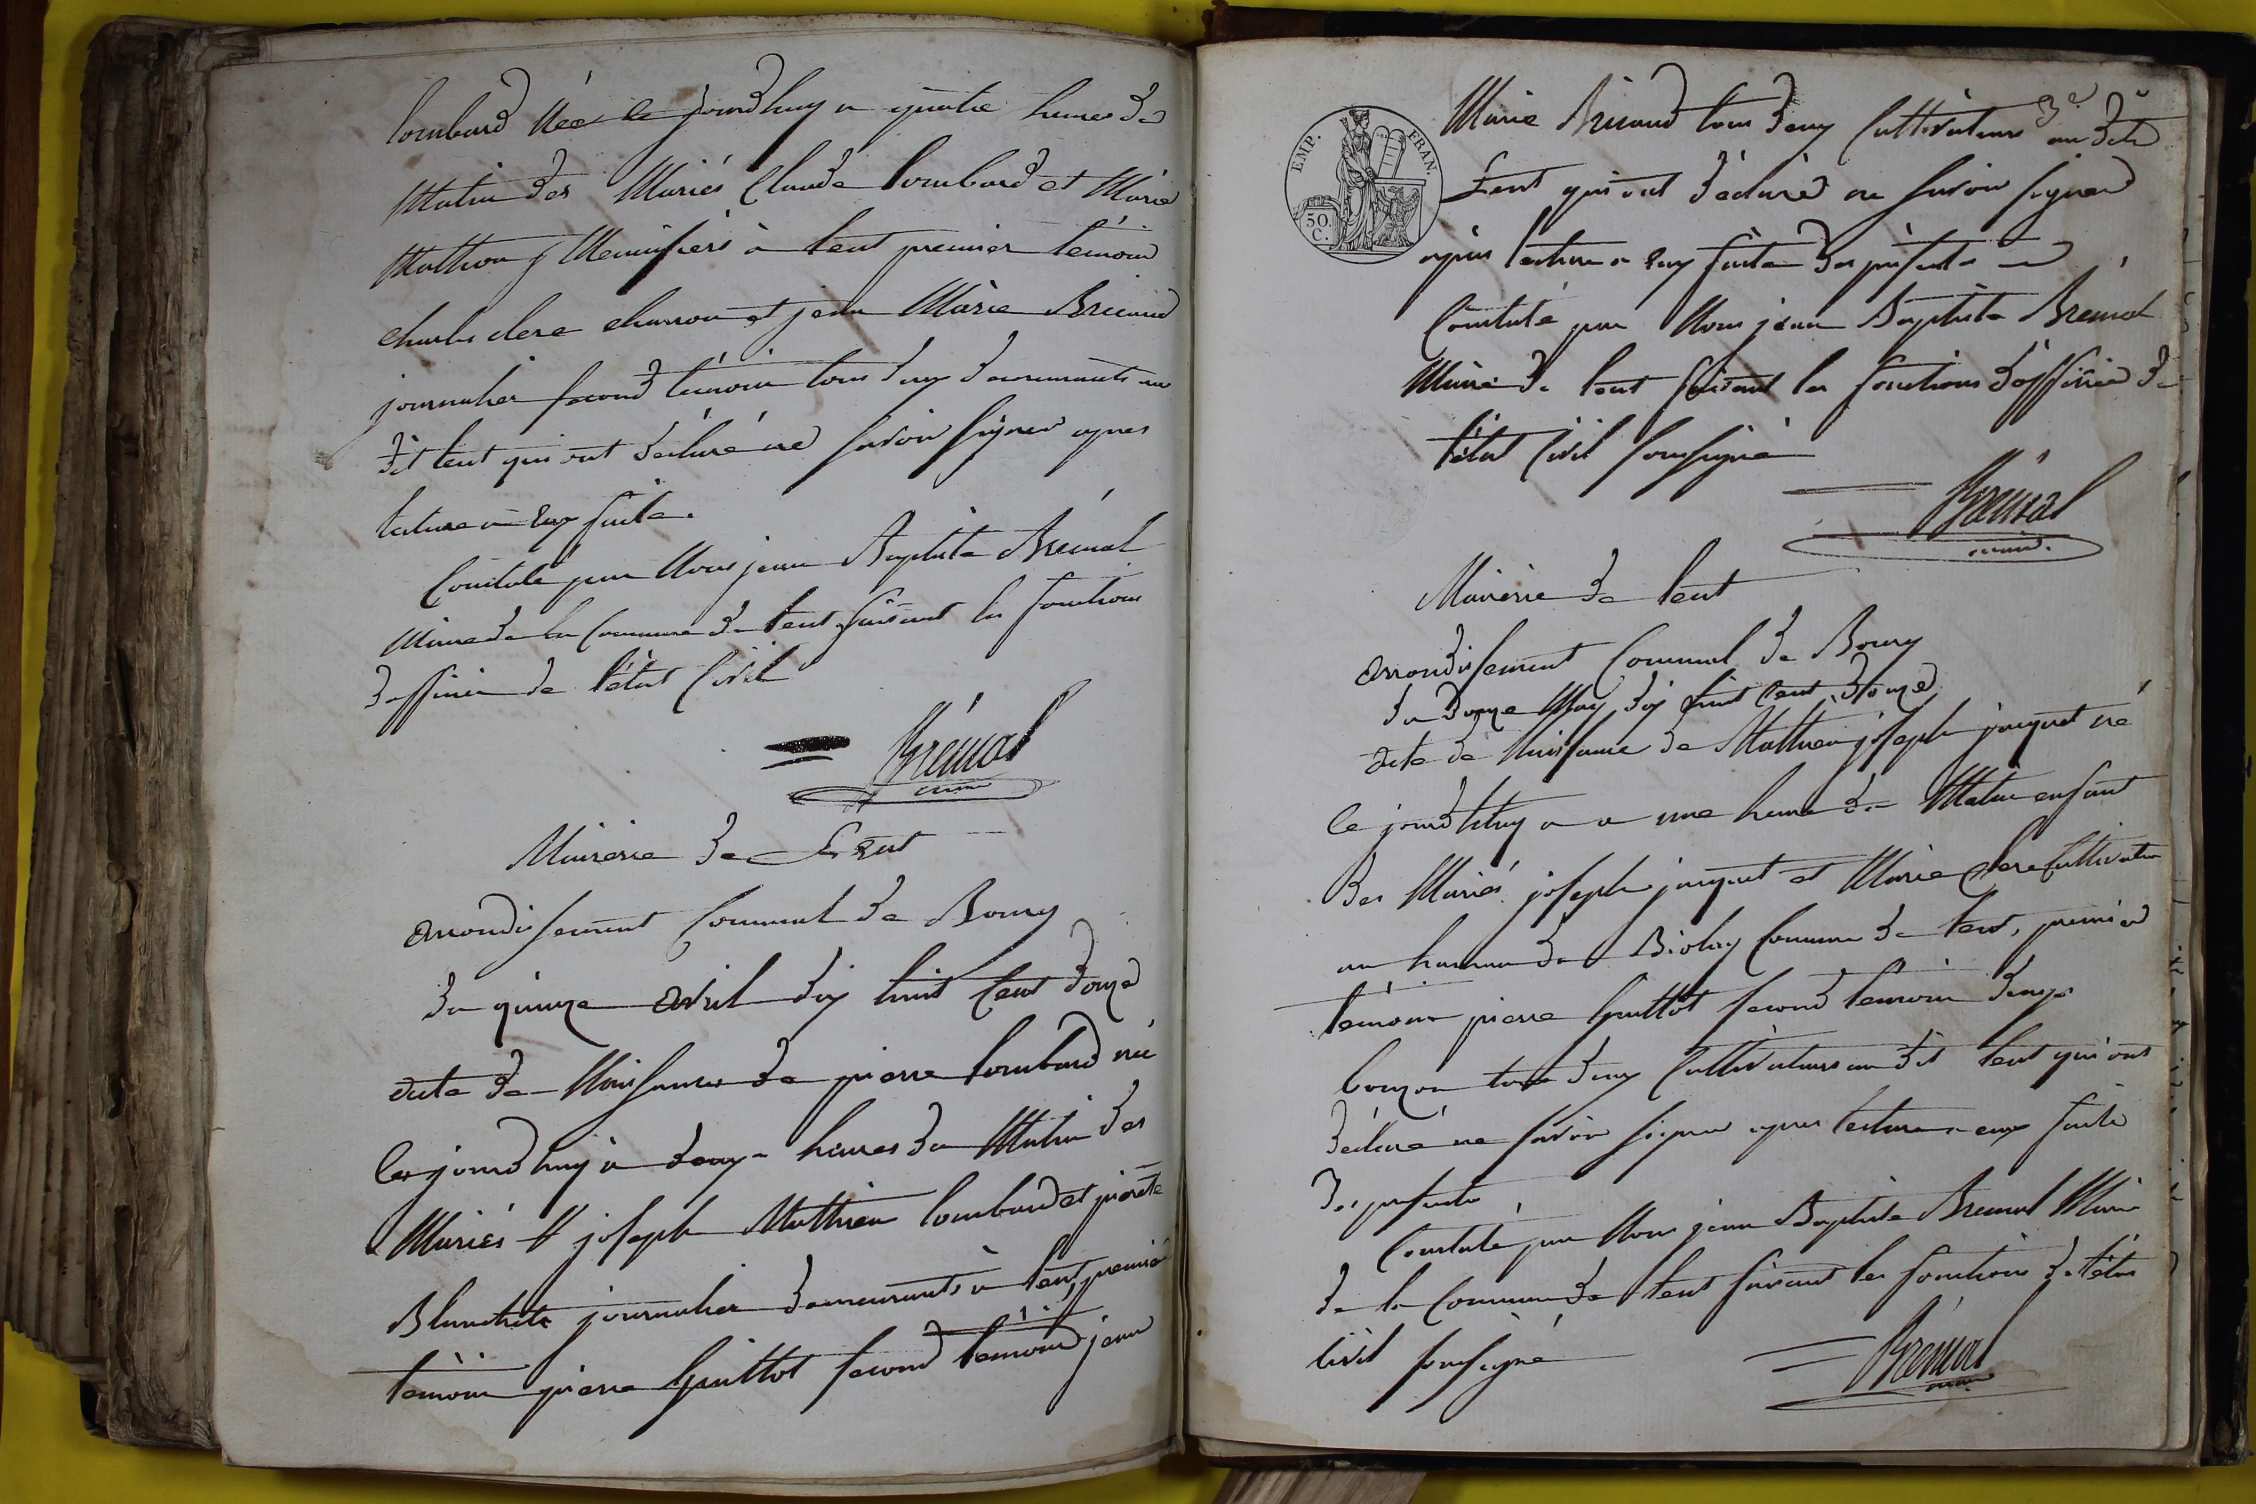 lombard née ce jourd'huy a quatre heures du
Matin des Mariés Claude lombard et Marie
Mathon Menuisiers à lent premier temoin
charles clere charron et jean Marie Bricaud
journalier second témoin tous deux demeurants au
dit lent qui ont déclaré ne savoir signer apres
lecture a eux faite.
Constaté par Nous jean Baptiste Bremal
Maire de la Commune de lent faisant les fonctions
d'officier de l'état Civil
Brémal
maire
Mairerie de Lent
arrondissement Communal de Bourg
du quinze avril dix huit Cent douze
acte de Naissance de pierre lombard né
le jourd'huy à deux heures du Matin des
Mariés joseph Mathieu lombard et pierrete
Blanchet journalier demeurants à lent, premier
temoin pierre Guillot second temoin jean
3e
Marie Bricaud tous deux Cultivateurs au dit
Lent qui ont déclaré ne savoir signer
apres lecture a eux faite des presentes
Constaté par Nous jean Baptiste Bremal
Maire de lent faisant les fonctions d'officier de
l'état Civil soussigné
EMP. FRAN.
50
C.
Brémal
maire.
Mairerie de lent
arrondissement Communal de Bourg
du douze May dix huit Cent douze
acte de Naissance de Mathieu joseph jacquet né
le jourd'huy a une heure du Matin enfant
des Mariés joseph jacquet et Marie clere Cultivateurs
au hameau de Biolay Commune de lent, premier
témoin pierre Guillot second temoin
tous deux Cultivateurs au dit lent qui ont
déclaré ne savoir signer apres lecture a eux faite
des presentes
Constaté par Nous jean Baptiste Bremal Maire
de la Commune de lent faisant les fonctions de l'état
Civil soussigné
Brémal
maire